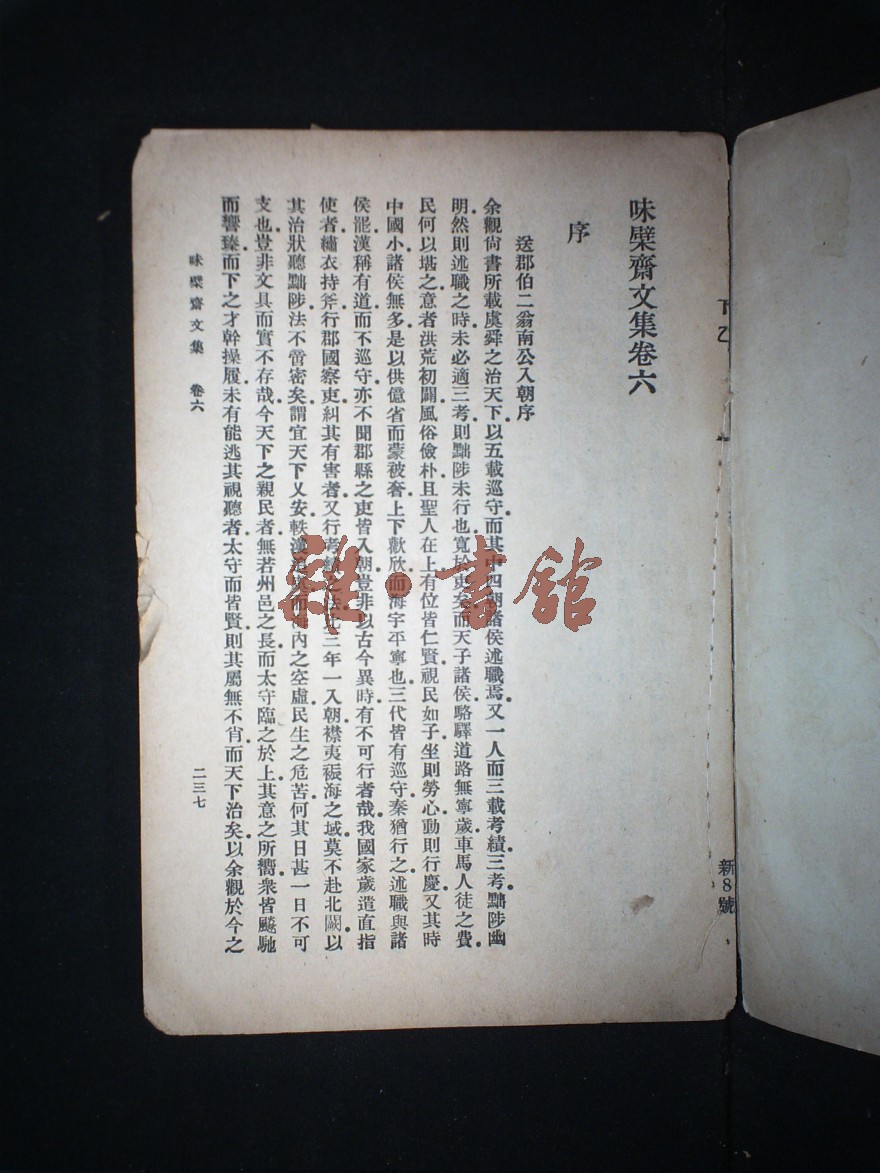 味檗齋文集卷六
序
送郡伯二翁南公入朝序
余觀尙書所載虞舜之治天下以五載巡守而其中四朝諸侯述職焉又一人而三載考績三考黜陟幽
明然則述職之時未必適三考則黜陟未行也寬於吏矣而天子諸侯駱驛道路無寧歲車馬人徒之費
民何以堪之意者洪荒初闢風俗儉朴且聖人在上有位皆仁賢視民如子坐則勞心動則行慶又其時
中國小諸侯無多是以供億省而蒙被奢上下歡欣而海宇平寧也三代皆有巡守秦猶行之述職與諸
侯罷漢稱有道而不巡守亦不聞郡縣之吏皆入朝豈非以古今異時有不可行者哉我國家歲遣直指
使者繡衣持斧行郡國察吏糾其有害者又行考績之法凡三年一入朝襟夷裖海之域莫不赴北闕以
其治狀聽黜陟法不啻密矣謂宜天下乂安軼漢 而海內之空虛民生之危苦何其日甚一日不可
支也豈非文具而實不存哉今天下之親民者無若州邑之長而太守臨之於上其意之所嚮衆皆飈馳
而響臻而下之才幹操履未有能逃其視聽者太守而皆賢則其屬無不肖而天下治矣以余觀於今之
味檗齋文集 卷六
二三七
新8號
雜·書館